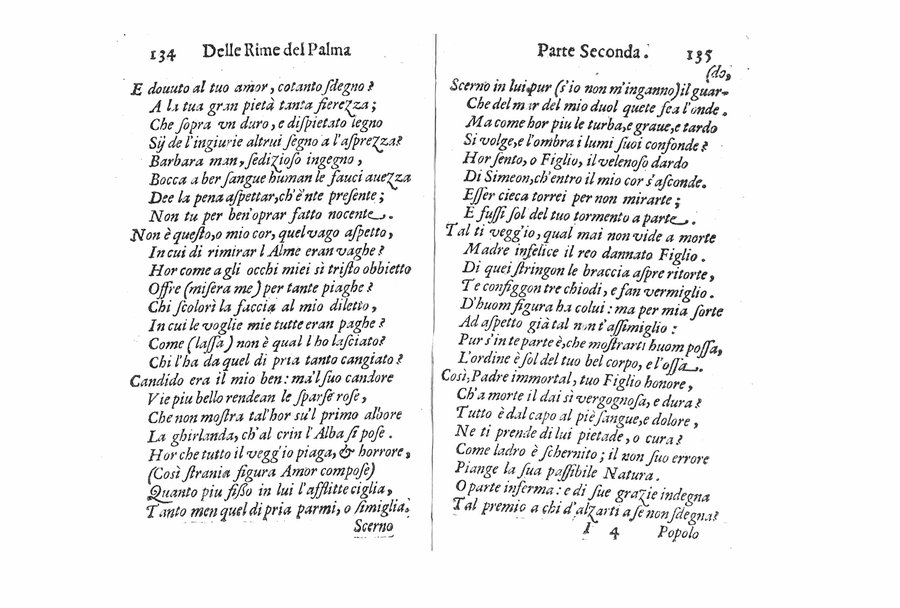 134 Delle Rime del Palma
E douuto al tuo amor, cotanto ſdegno?
A la tua gran pietà tanta fierezza;
Che ſopra vn duro, e diſpietato legno
Sij de l'ingiurie altrui ſegno a l'aſprezza?
Barbara man, ſedizioſo ingegno,
Bocca a ber ſangue human le fauci auezza
Dee la pena aſpettar, ch'è'nte preſente;
Non tu per ben'oprar fatto nocente.
Non è queſto, o mio cor, quel vago aſpetto,
In cui di rimirar l'Alme eran vaghe?
Hor come a gli occhi miei sì triſto obbietto
Offre (miſera me) per tante piaghe?
Chi ſcolorì la faccia al mio diletto,
In cui le voglie mie tutte eran paghe?
Come (laſſa) non è qual l ho laſciato?
Chi l'ha da quel di pria tanto cangiato?
Candido era il mio ben: ma'l ſuo candore
Vie piu bello rendean le ſparſe roſe,
Che non moſtra tal'hor su'l primo albore
La ghirlanda, ch'al crin l'Alba ſi poſe.
Hor che tutto il vegg'io piaga, & horrore,
(Così ſtrania figura Amor compoſe)
Quanto piu fiſſo in lui l'afflitte ciglia,
Tanto men quel di pria parmi, o ſimiglia.
Scerno
Parte Seconda. 135
(do,
Scerno in lui pur (s'io non m'inganno) il guar-
Che del mar del mio duol quete fea l'onde.
Ma come hor piu le turba, e graue, e tardo
Si volge, e l'ombra i lumi ſuoi confonde?
Hor ſento, o Figlio, il velenoſo dardo
Di Simeon, ch'entro il mio cor s'aſconde.
Eſſer cieca torrei per non mirarte;
E fuſſi ſol del tuo tormento a parte.
Tal ti vegg'io, qual mai non vide a morte
Madre infelice il reo dannato Figlio.
Di quei ſtringon le braccia aſpre ritorte,
Te configgon tre chiodi, e fan vermiglio.
D'huom figura ha colui: ma per mia ſorte
Ad aſpetto già tal non t'aſſimiglio:
Pur s'in te parte è, che moſtrarti huom poſſa,
L'ordine è ſol del tuo bel corpo, e l'oſſa.
Così, Padre immortal, tuo Figlio honore,
Ch'a morte il dai sì vergognoſa, e dura?
Tutto è dal capo al piè ſangue, e dolore,
Ne ti prende di lui pietade, o cura?
Come ladro è ſchernito; il non ſuo errore
Piange la ſua paſſibile Natura.
O parte inferma: e di ſue grazie indegna
Tal premio a chi d'alzarti a ſe non ſdegna?
I 4 Popolo